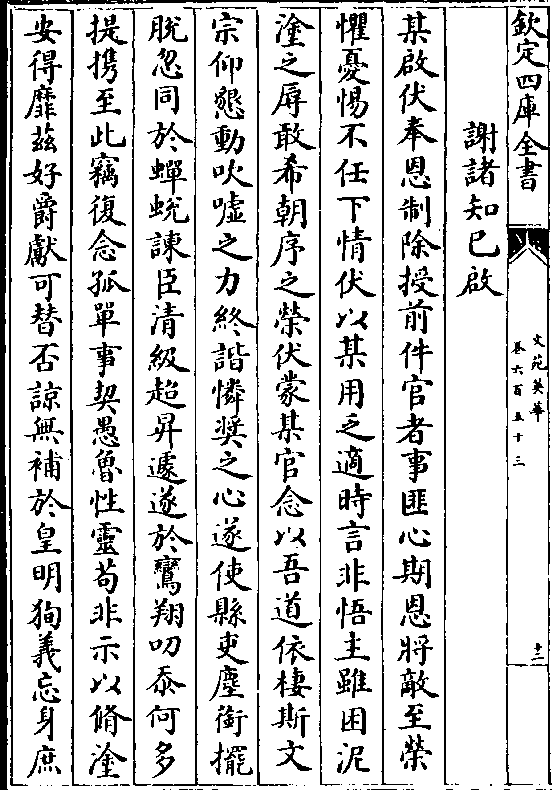 欽定四庫全書
文苑英華
卷六百五十三
十二
謝諸知己啟
某啟伏奉恩制除授前件官者事匪心期恩將敵至榮
懼憂惕不任下情伏以某用乏適時言非悟主雖困泥
塗之辱敢希朝序之榮伏蒙某官念以吾道依棲斯文
宗仰懇動吹噓之力終諧憐奬之心遂使縣吏塵銜擺
脫忽同於蟬蛻諫臣清級超昇遽遂於鸞翔叨忝何多
提携至此竊復念孤單事契愚魯性靈苟非示以脩塗
安得靡茲好爵獻可替否諒無補於皇明狥義忘身庶